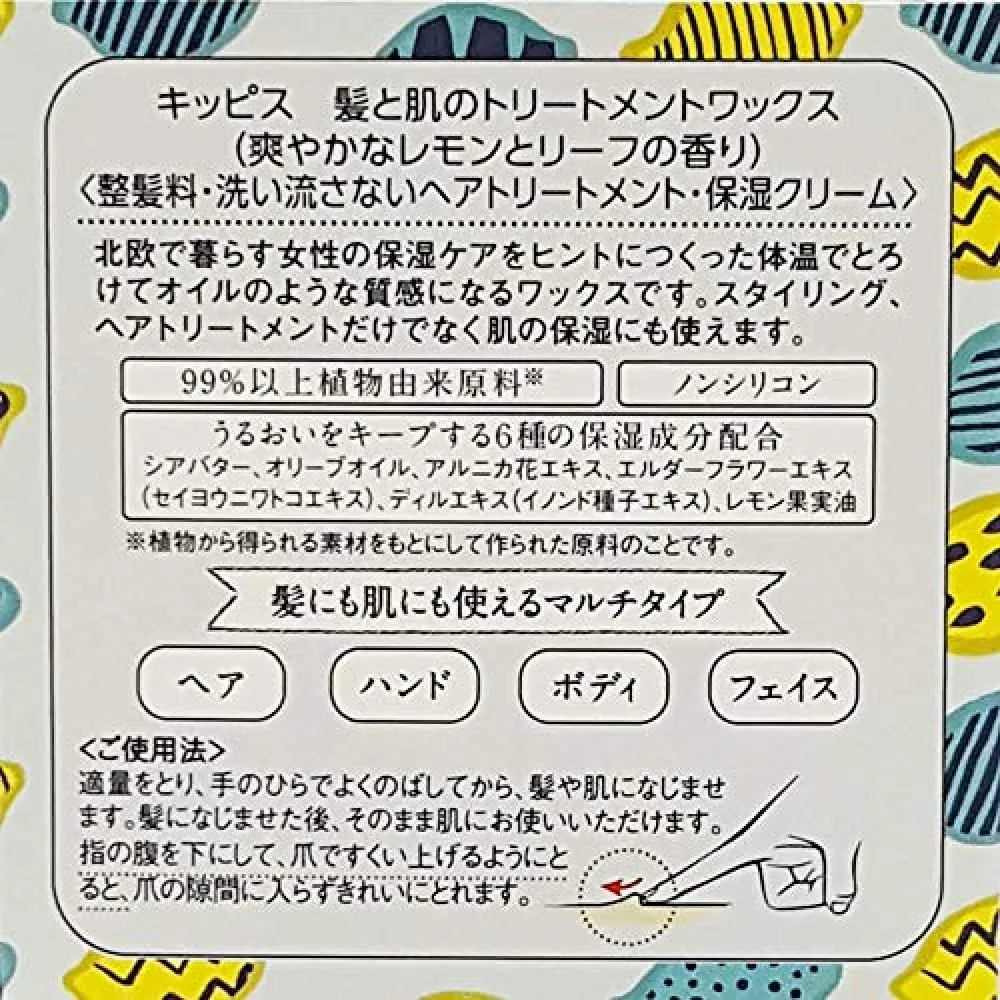 キッピス　髪と肌のトリートメントワックス
(爽やかなレモンとリーフの香り)
〈整髪料・洗い流さないヘアトリートメント・保湿クリーム〉
北欧で暮らす女性の保湿ケアをヒントにつくった体温でとろ
けてオイルのような質感になるワックスです。スタイリング、
ヘアトリートメントだけでなく肌の保湿にも使えます。
99%以上植物由来原料※
ノンシリコン
うるおいをキープする6種の保湿成分配合
シアバター、オリーブオイル、アルニカ花エキス、エルダーフラワーエキス
(セイヨウニワトコエキス)、ディルエキス(イノンド種子エキス)、レモン果実油
※植物から得られる素材をもとにして作られた原料のことです。
髪にも肌にも使えるマルチタイプ
ヘア
ハンド
ボディ
フェイス
<ご使用法>
適量をとり、手のひらでよくのばしてから、髪や肌になじませ
ます。髪になじませた後、そのまま肌にお使いいただけます。
指の腹を下にして、爪ですくい上げるようにと
ると、爪の隙間に入らずきれいにとれます。